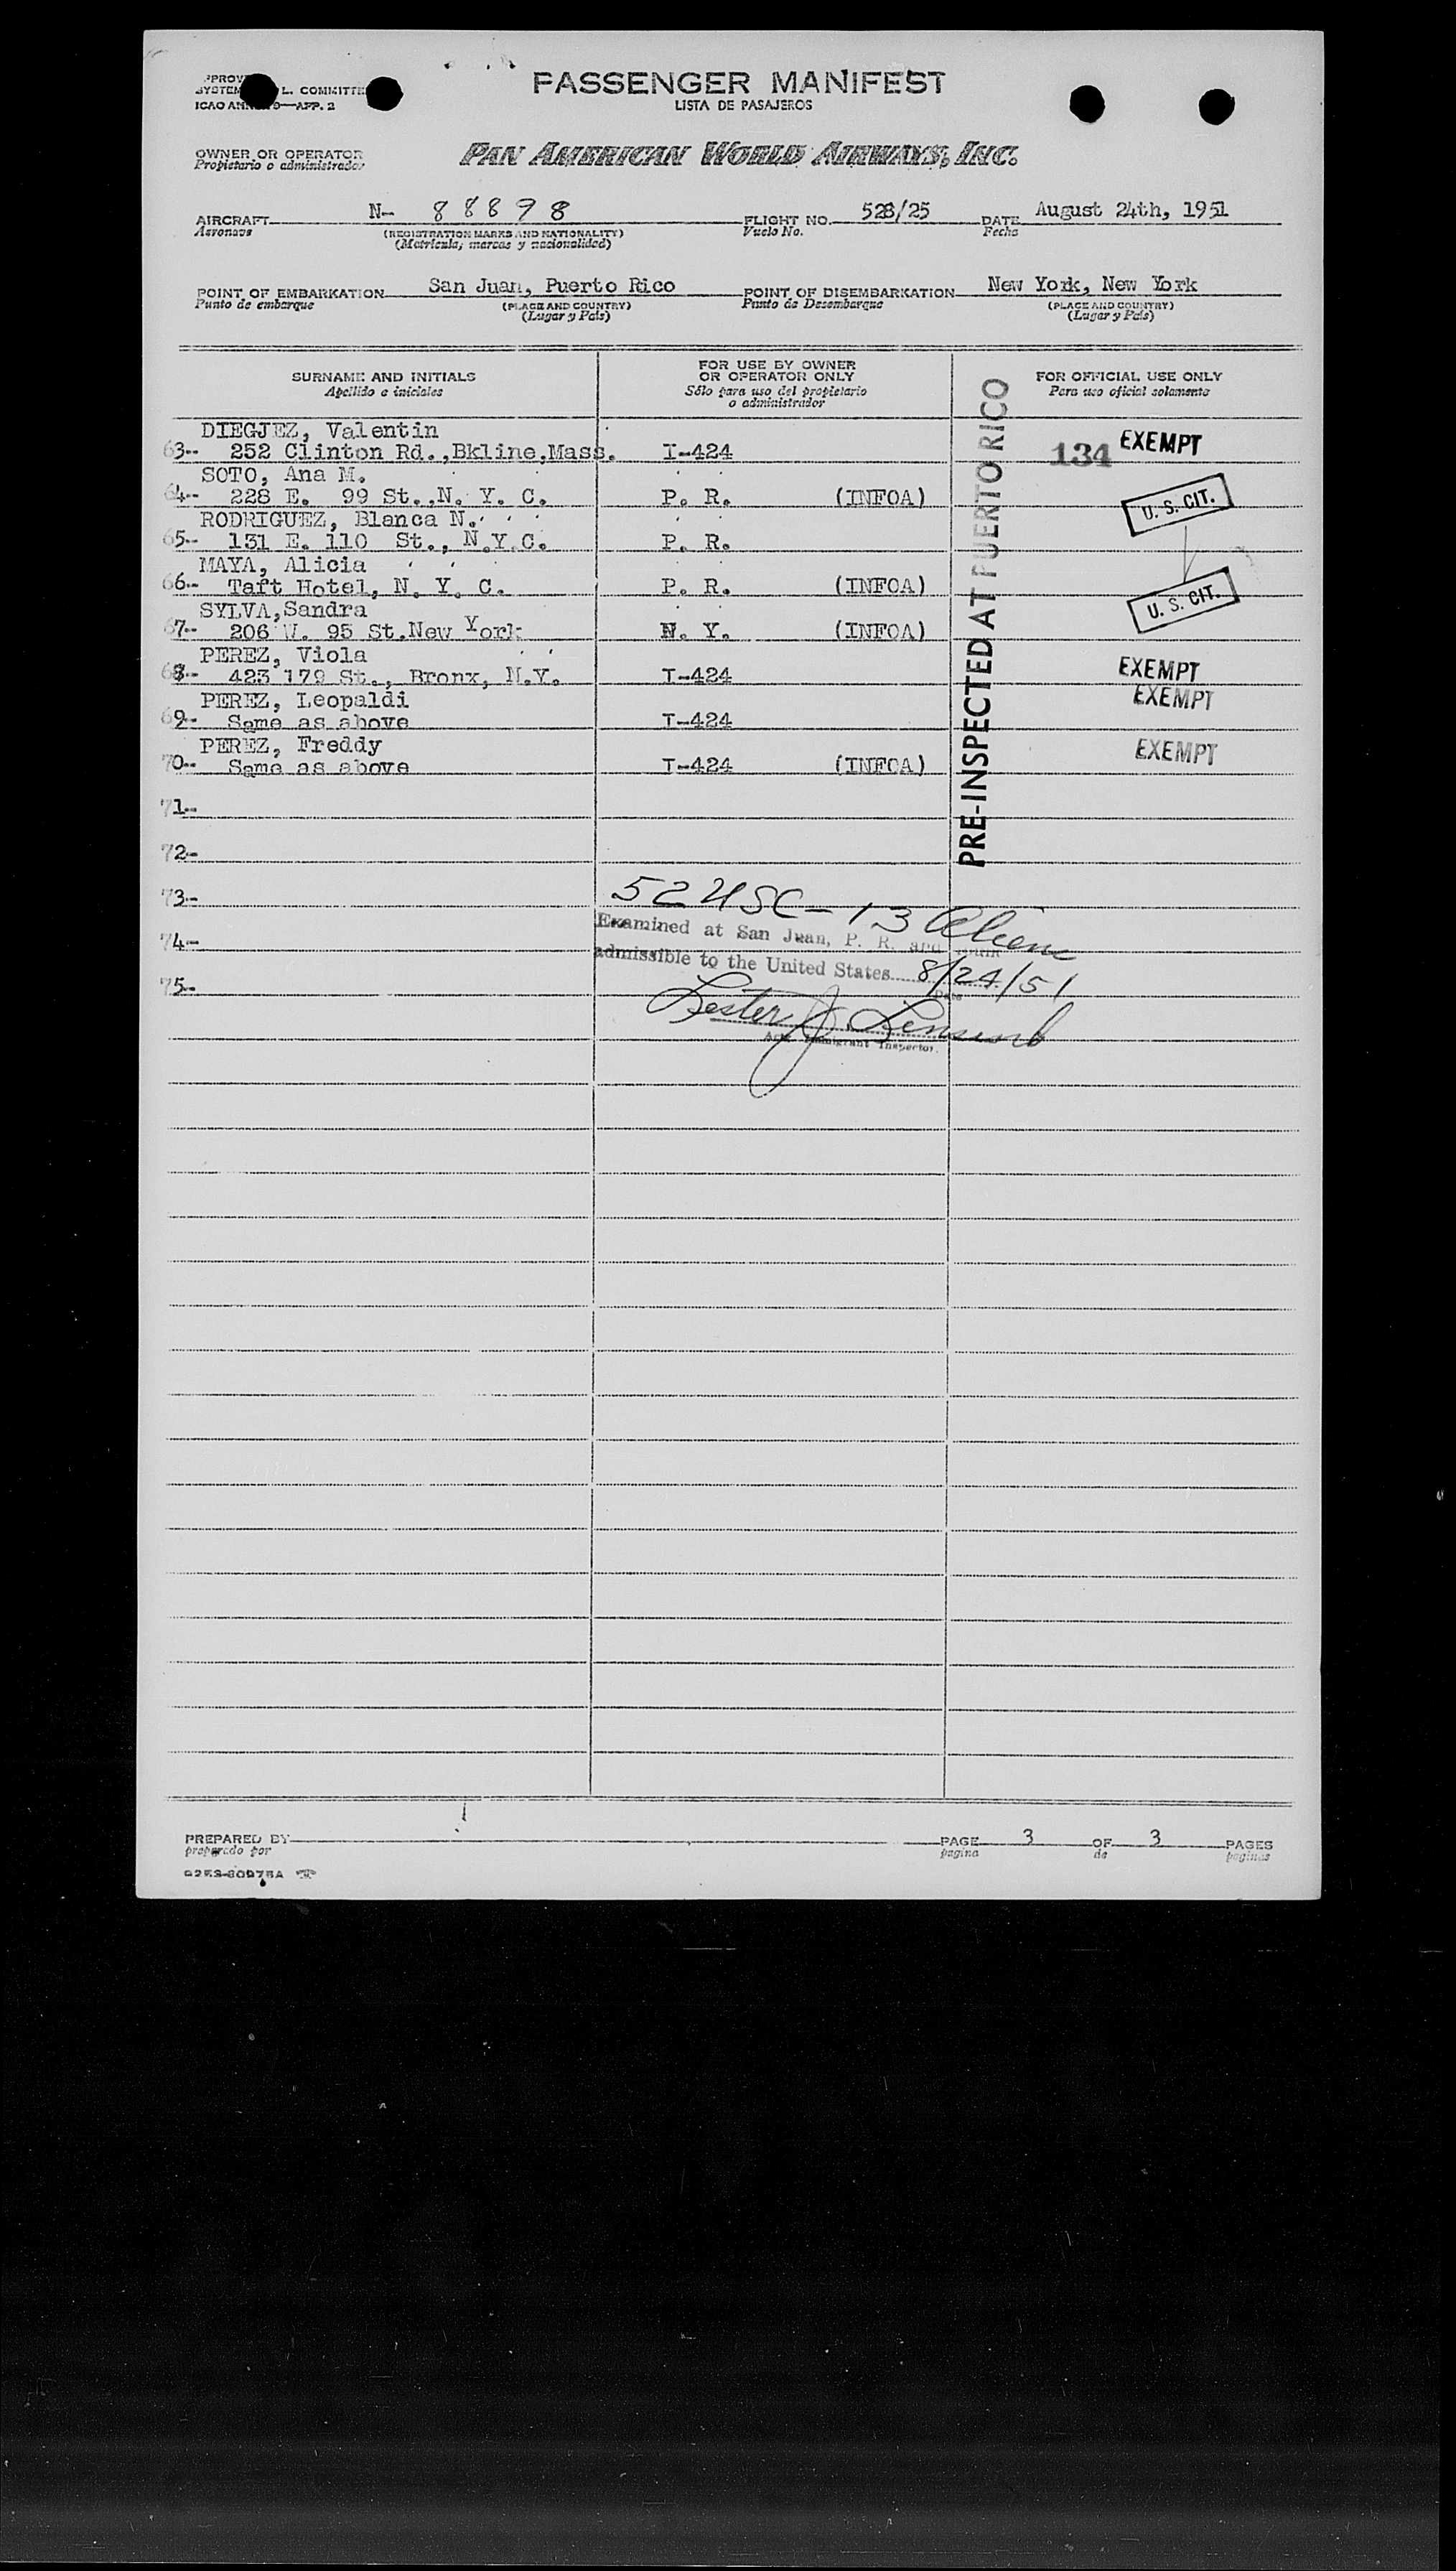 PASSENGER MANIFEST
LISTA DE PASAJEROS
L. COMMITTE
ICAO APP. 2
OWNER OR OPERATOR
Propietario o administrador
PAN AMERICAN WORLD AIRWAYS, INC.
AIRCRAFT N- 88898 FLIGHT NO. 528/25 DATE August 24th, 1951
Aeronave (REGISTRATION MARKS AND NATIONALITY) Vuelo No. Fecha
(Matricula, marcas y nacionalidad)
POINT OF EMBARKATION San Juan, Puerto Rico POINT OF DISEMBARKATION New York, New York
Punto de embarque (PLACE AND COUNTRY) Punto de Desembarque (PLACE AND COUNTRY)
(Lugar y País) (Lugar y País)
SURNAME AND INITIALS
Apellido e iniciales
FOR USE BY OWNER
OR OPERATOR ONLY
Sólo para uso del propietario
o administrador
FOR OFFICIAL USE ONLY
Para uso oficial solamente
PRE-INSPECTED AT PUERTO RICO
DIEGJEZ, Valentin
63-- 252 Clinton Rd.,Bkline,Mass. I-424 134 EXEMPT
SOTO, Ana M.
64-- 228 E. 99 St.,N. Y. C. P. R. (INFOA) U. S. CIT.
RODRIGUEZ, Blanca N.
65-- 131 E. 110 St., N.Y.C. P. R.
MAYA, Alicia
66-- Taft Hotel, N. Y. C. P. R. (INFOA)
SYLVA,Sandra U. S. CIT.
67-- 206 W. 95 St.New York N. Y. (INFOA)
PEREZ, Viola
68-- 423 179 St., Bronx, N.Y. I-424 EXEMPT
PEREZ, Leopaldi EXEMPT
69-- Same as above I-424
PEREZ, Freddy EXEMPT
70-- Same as above I-424 (INFOA)
71--
72-
73-
52 USC - 13 Alien
74-
Examined at San Juan, P. R. and
admissible to the United States 8/24/51
75-
Date
Lester J.
Immigrant Inspector.
PREPARED BY PAGE 3 OF 3 PAGES
preparado por pagina de paginas